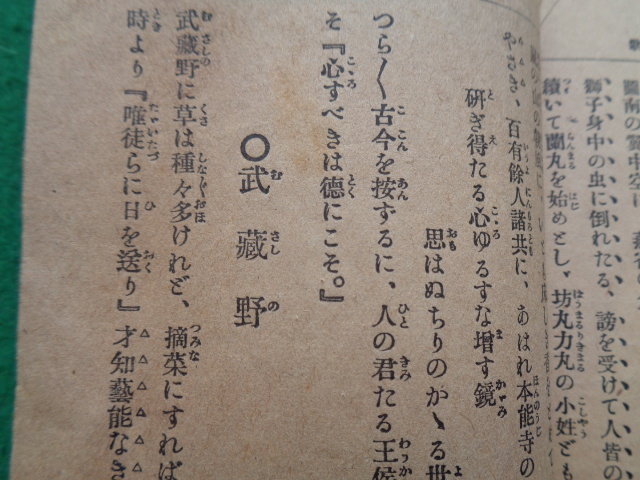 獅子身中の虫に倒れたる、謗を受けて人皆の
續いて蘭丸を始めとし、坊丸力丸の小姓ども
百有餘人諸共に、あはれ本能寺の
研ぎ得たる心ゆるすな增す鏡
思はぬちりのかゝる世
つら〱古今を按ずるに、人の君たる王侯
そ『心すべきは德にこそ。』
〇武藏野
武藏野に草は種々多けれど、摘菜にすれば
時より『唯徒らに日を送り』才知藝能なき